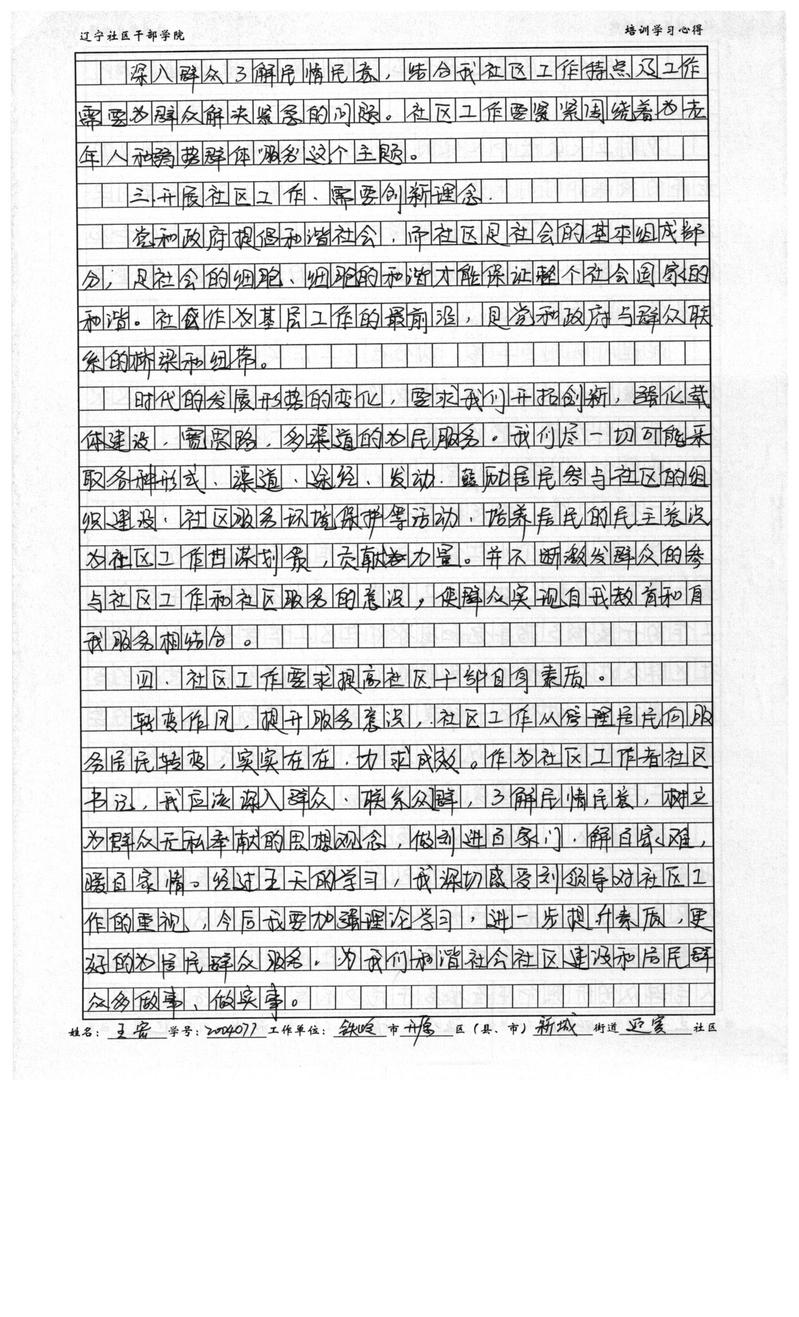 辽宁社区干部学院 培训学习心得
深入群众了解民情民意，结合我社区工作特点及工作
需要为群众解决紧急的问题。社区工作要紧紧围绕着为老
年人和弱势群体服务这个主题。
三.开展社区工作、需要创新理念.
党和政府提倡和谐社会，而社区是社会的基本组成部
分；是社会的细胞、细胞的和谐才能保证整个社会国家的
和谐。社会作为基层工作的最前沿，是党和政府与群众联
系的桥梁和纽带。
时代的发展形势的变化，要求我们开拓创新，强化载
体建设、宽思路，多渠道的为民服务。我们尽一切可能采
取各种形式、渠道、途经、发动.鼓励居民参与社区的组
织建设、社区服务环境保护等活动、培养居民的民主意识
为社区工作出谋划策，贡献力量。并不断激发群众的参
与社区工作和社区服务的意识，使群众实现自我教育和自
我服务相结合。
四.社区工作要求提高社区干部自身素质。
转变作风，提升服务意识，社区工作从管理居民向服
务居民转变，实实在在.力求成效。作为社区工作者社区
书记，我应该深入群众、联系众群，了解民情民意，树立
为群众无私奉献的思想观念，做到进百家门.解百家难，
暖百家情。经过五天的学习，我深切感受到领导对社区工
作的重视，今后我要加强理论学习，进一步提升素质，更
好的为居民群众服务.为我们和谐社会社区建设和居民群
众多做事、做实事。
姓名：王 学号：2004077 工作单位：铁岭 市 开原 区（县、市） 新城 街道 迎宾 社区